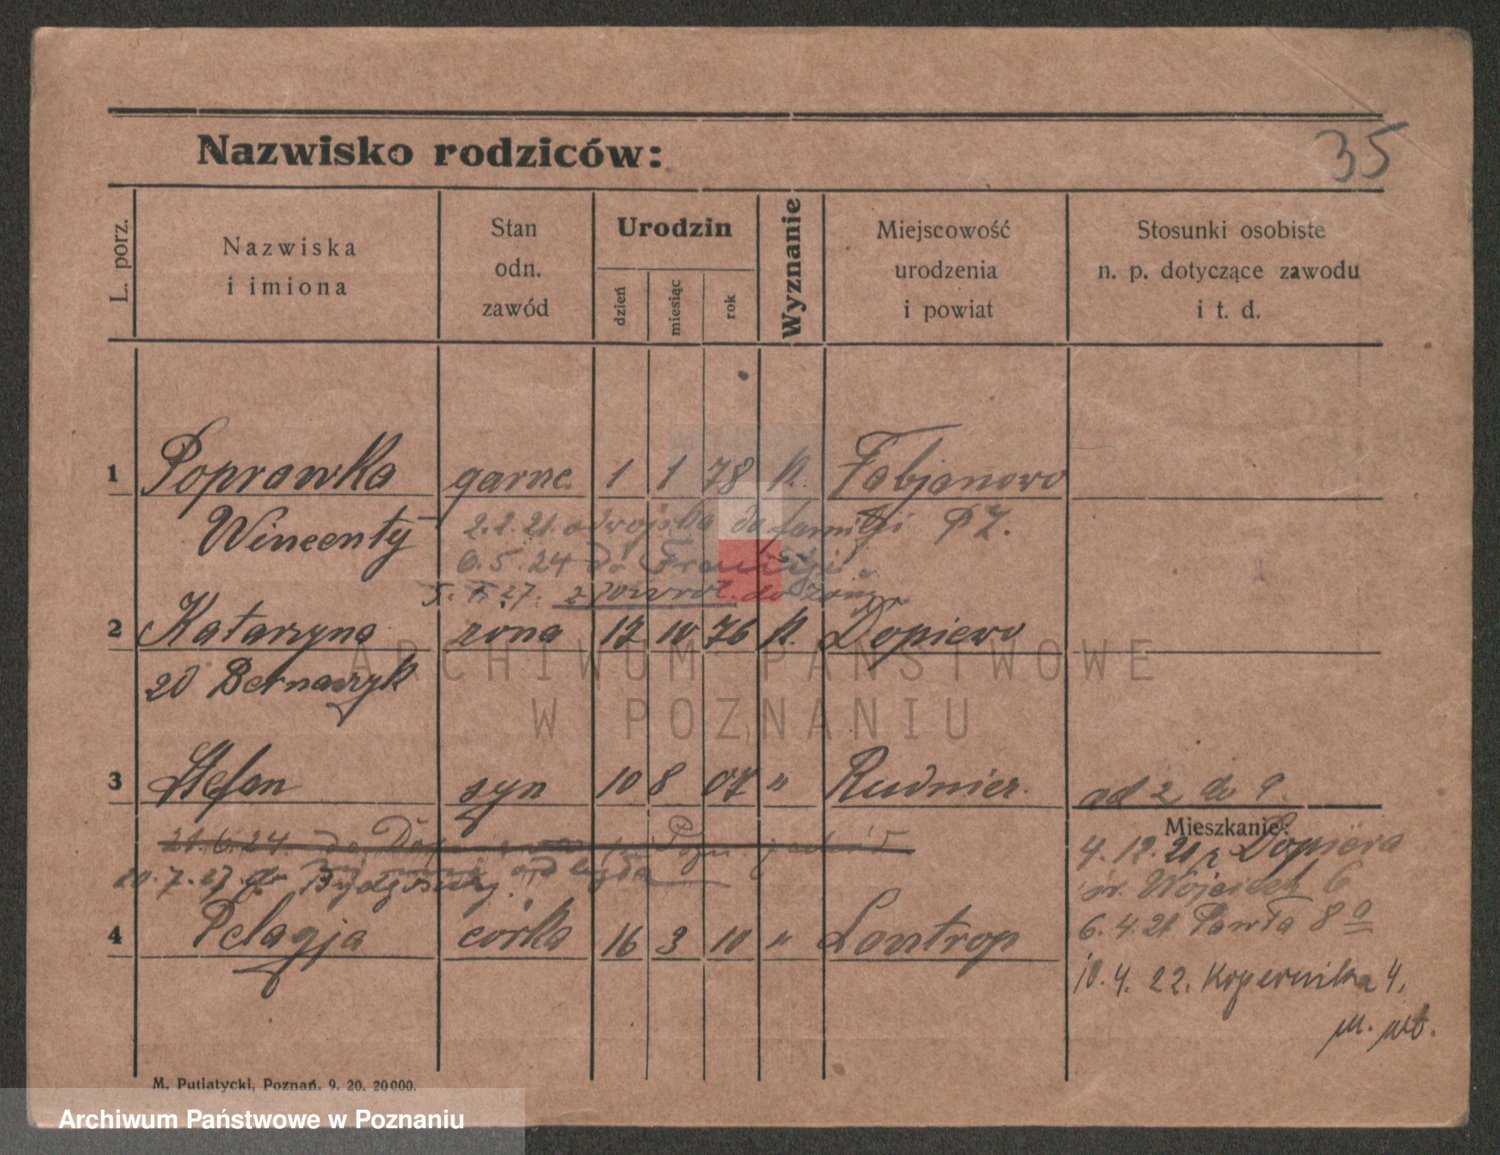 35
Nazwisko rodziców:
L. porz.
Nazwiska
i imiona
Stan
odn.
zawód
Urodzin
dzień
miesiąc
rok
Wyznanie
Miejscowość
urodzenia
i powiat
Stosunki osobiste
n. p. dotyczące zawodu
i t. d.
1 Poprawka garnc. 1 1 78 k. Fabjanowo
Wincenty 2.2.21. z wojska do familji
6.5.24 do Francji
5. 27. żony
2 Katarzyna żona 12 10 76 k. Dopiewo
zd Bernaczyk
3 Stefan syn 10 8 07 " Rudnicz. od 2 do 9.
Mieszkanie:
21.6.24. do
4.12.21 Dopiera
7.27 do Bydgoszczy
św. Wojciech 6
4 Pelagja córka 16 3 10 " Lontrop
6.4.21 Pawła 8a
10.4.22. Kopernika 4.
M. Putiatycki, Poznań. 9. 20. 20000.
ARCHIWUM PAŃSTWOWE
W POZNANIU
Archiwum Państwowe w Poznaniu